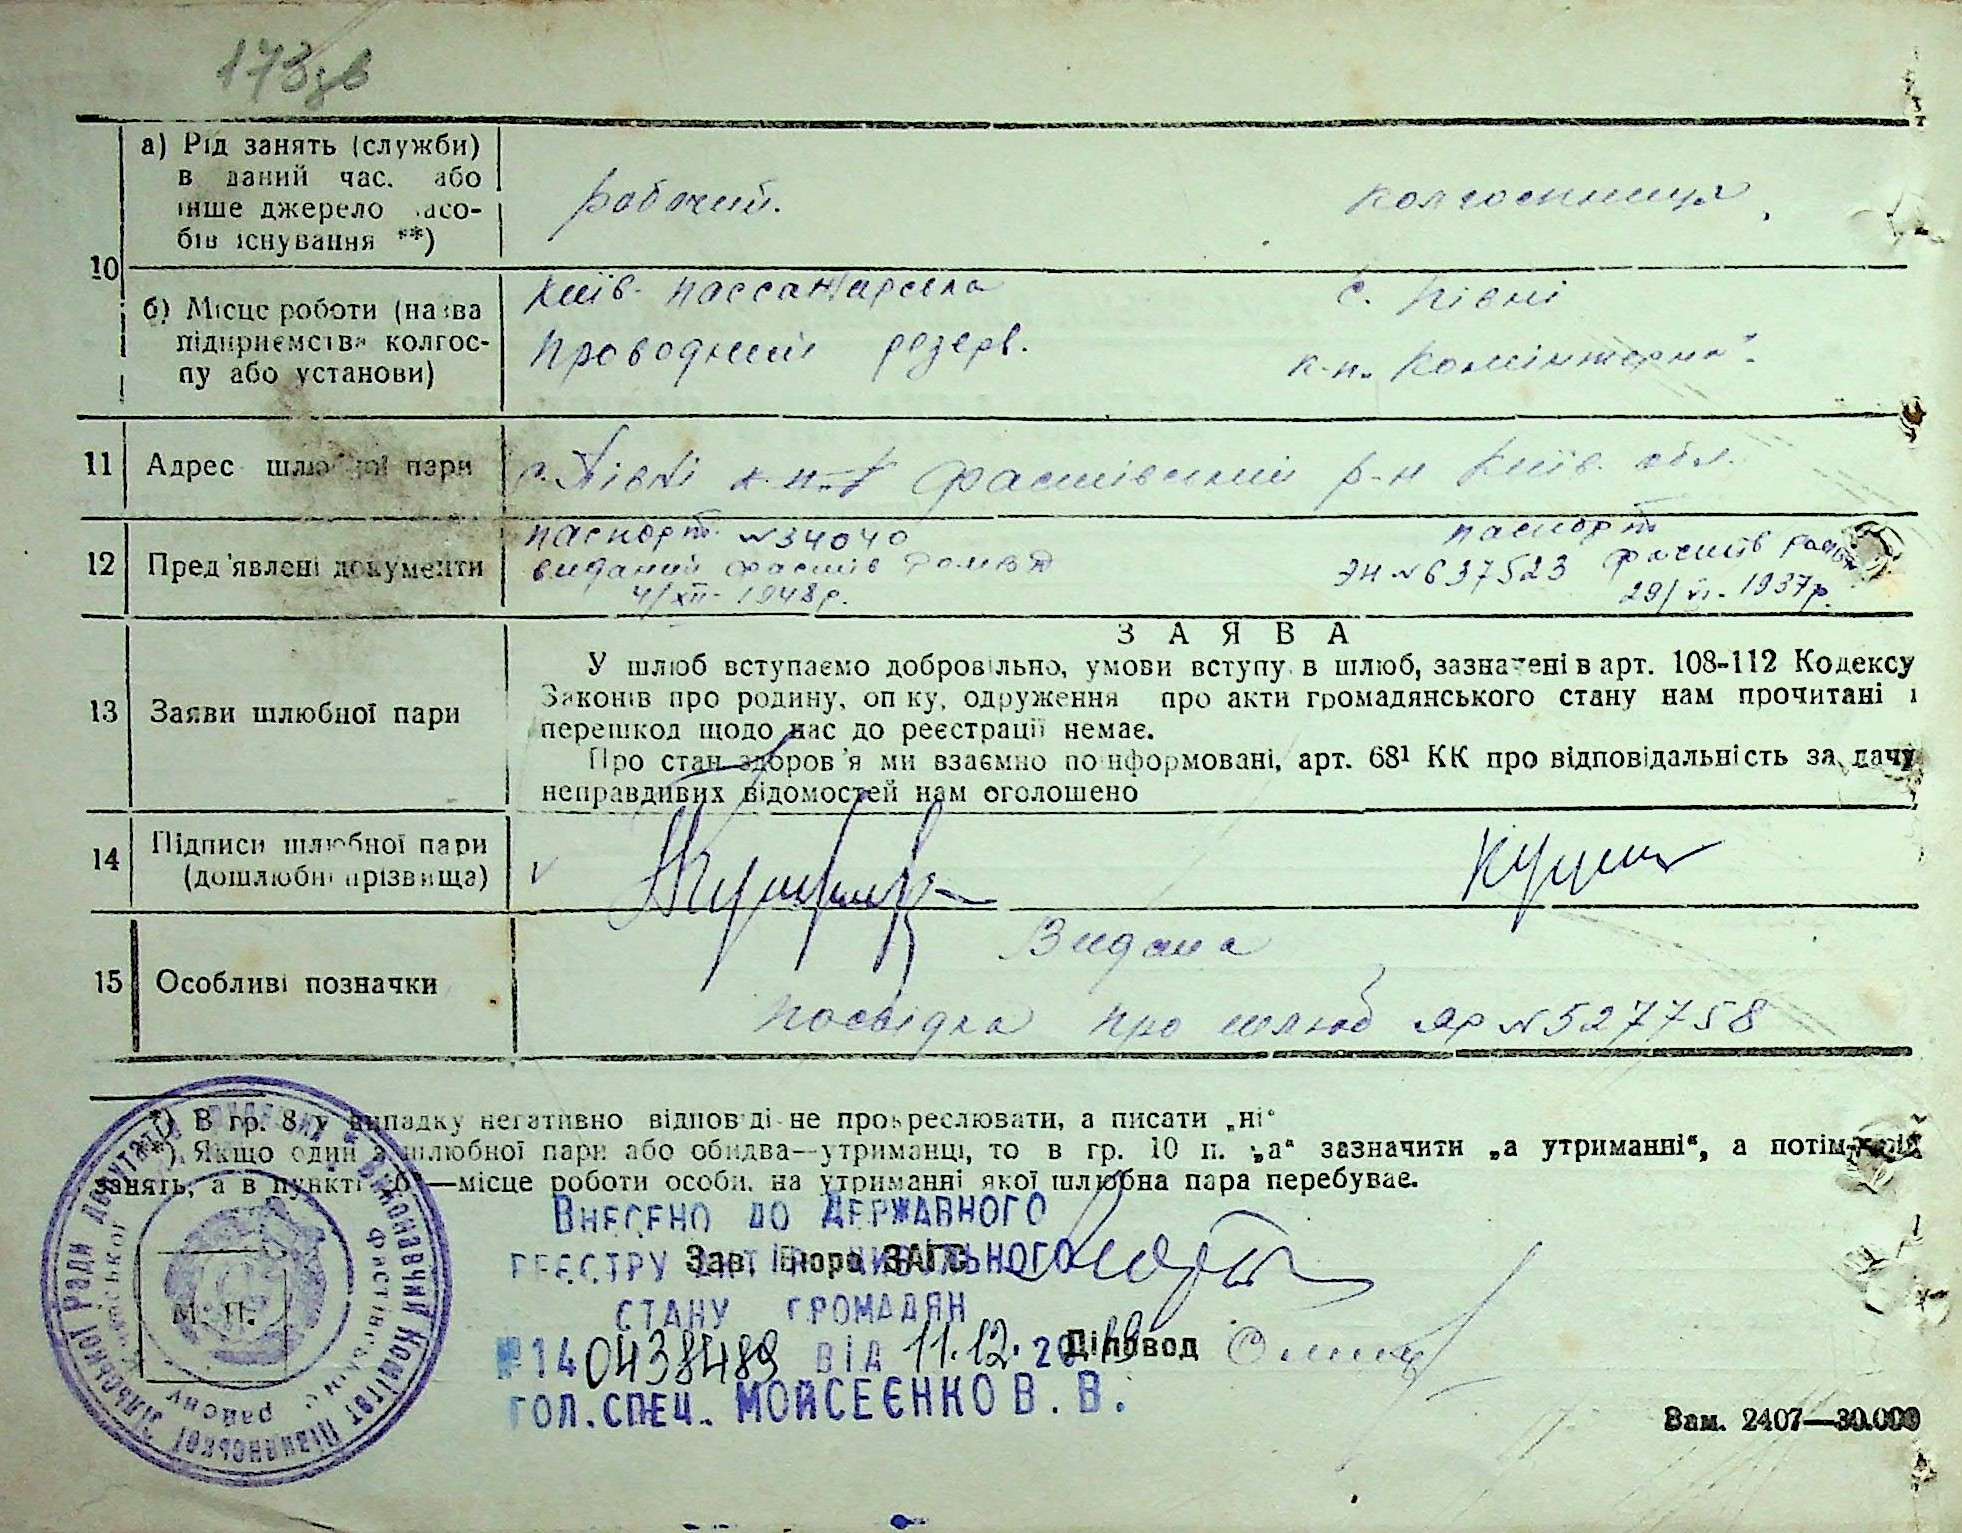 173зв
10
а) Рід занять (служби)
в даний час. або
інше джерело засо-
бів існування **)
рабочий.
колгоспниця
б) Місце роботи (назва
підприємства колгос-
пу або установи)
Київ-пассажирська
Проводний резерв.
с. Півні
к-п. Комінтерна".
11
Адрес шлюбної пари
с. Півні
Фастівський р-н Київ. обл.
12
Пред'явлені документи
паспорт №34040
виданий Фастів
4/XII-1948р.
паспорт
ЭН №637523 Фастів
29/VI-1937р.
13
Заяви шлюбної пари
ЗАЯВА
У шлюб вступаємо добровільно, умови вступу в шлюб, зазначені в арт. 108-112 Кодексу
Законів про родину, опіку, одруження про акти громадянського стану нам прочитані і
перешкод щодо нас до реєстрації немає.
Про стан здоров'я ми взаємно поінформовані, арт. 68¹ КК про відповідальність за дачу
неправдивих відомостей нам оголошено
14
Підписи шлюбної пари
(дошлюбні прізвища)
15
Особливі позначки
Видана
посвідка про шлюб ЯР №527758
*) В гр. 8 у випадку негативно відповіді не прокреслювати, а писати „ні"
**) Якщо один з шлюбної пари або обидва—утриманці, то в гр. 10 п. „а" зазначити „а утриманні", а потім рід
занять, а в пункті „б"—місце роботи особи, на утриманні якої шлюбна пара перебуває.
Виконавчий Комітет Півнянської сільської Ради депутатів трудящих
Фастівського району Київської
М. П.
Внесено до державного
реєстру актів цивільного
стану громадян
№140438489 від 11.12.2019
Гол. спец. Мойсеєнко В. В.
Зав. Бюро ЗАГС
Діловод
Зам. 2407—30.000